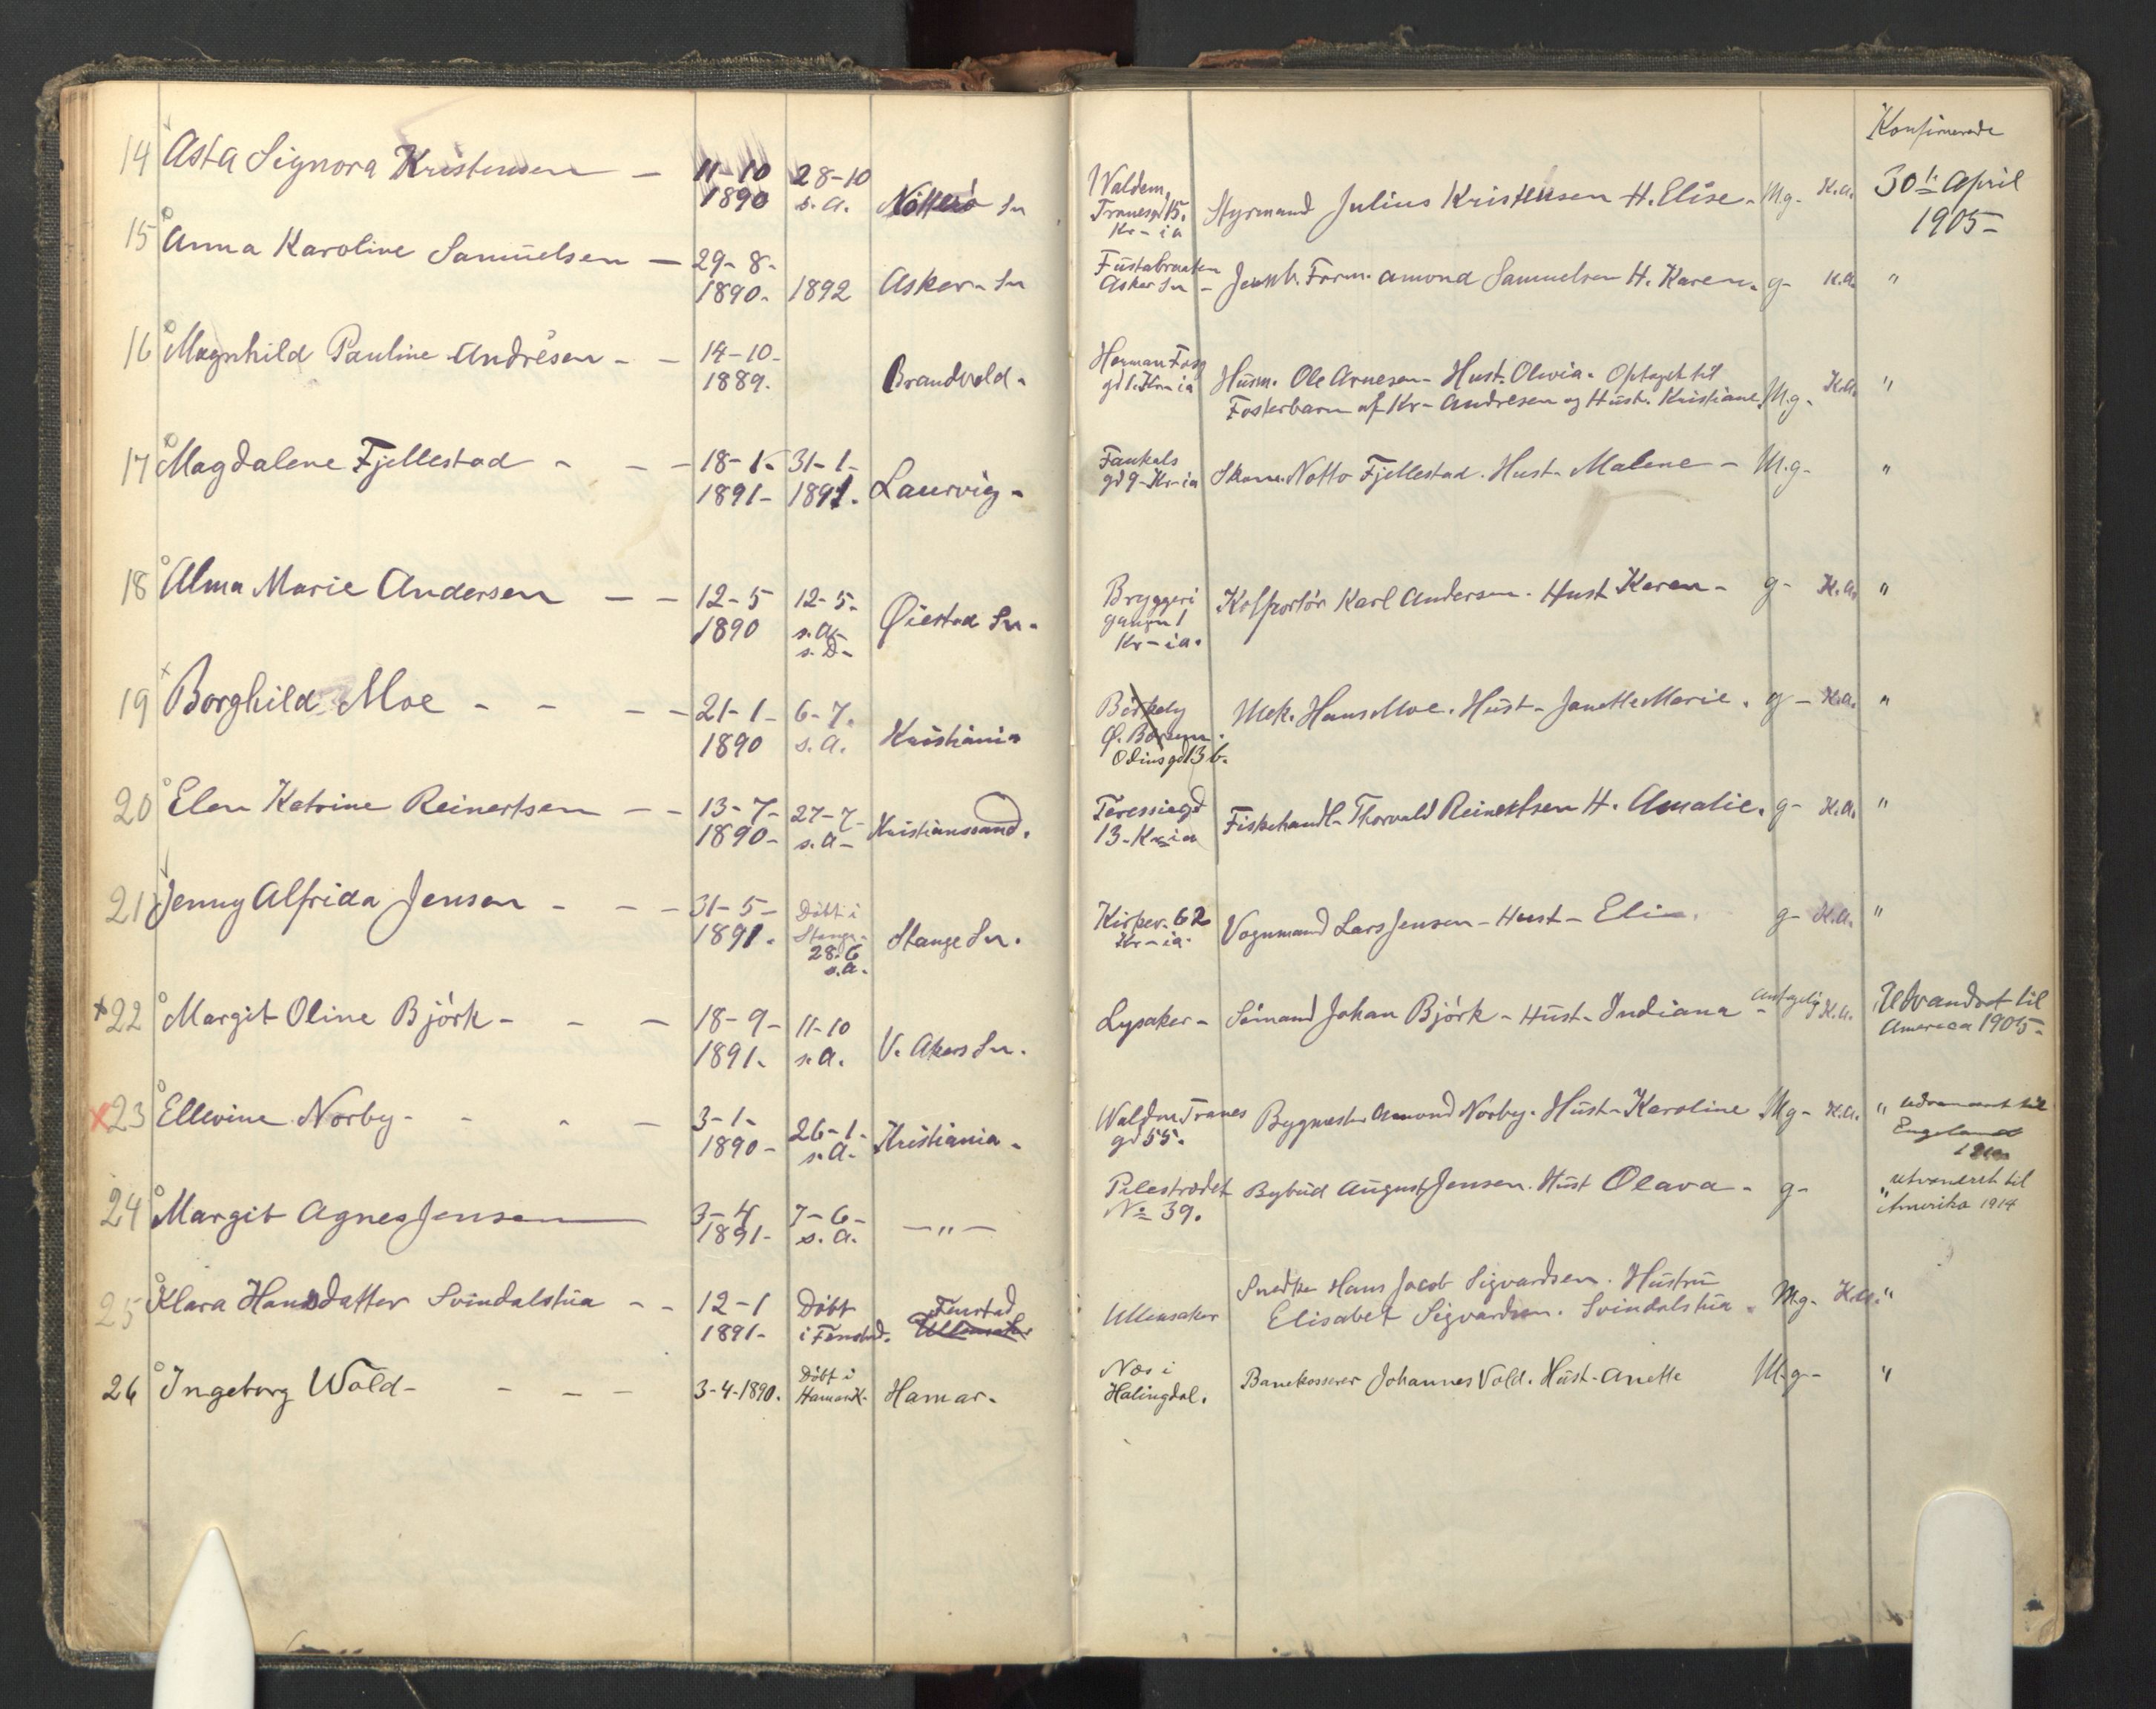 Konfirmerede
14 Asta Signora Kristensen — 11-10 28-10
1890 s. a. Nötterö Sn
Valdem.
Tranesgd 15. Styrmand Julius Kristensen H. Elise - Mg- K.a. 30te April
Kr-ia 1905-
15 Anna Karoline Samuelsen — 29-8-
1890- 1892 Asker- Sn
Fustabraaten
Asker Sn - Jernb. Form. Amond Samuelsen H. Karen. g- K.a. "
16 Magnhild Pauline Andrésen - - 14-10-
1889. Brandvold-
Herman Foss
gd 1. Kr-ia Husm. Ole Arnesen- Hust. Olivia. Optaget til
Fosterbarn af Kr- Andresen og Hust. Kristiane. Mg- K.a. "
17 Magdalene Fjellestad - - - 18-1- 31-1-
1891- 1891. Laurvig-
Faukals
gd 9- Kr-ia Skom. Notto Fjellestad. Hust- Malene - M.g- "
18 Alma Marie Andersen - - 12-5 12-5-
1890 s.a- Øiestad Sn-
s.d-
Bryggeri
gangen 1 Kolportör Karl Andersen. Hust Karen - g- K.a. "
Kr-ia.
19 Borghild Moe - - - - 21-1- 6-7.
1890 s.a. Kristiania
Birkely
Ø. Bærum. Mek. Hans Moe. Hust- Janette Marie. g- K.a. "
Odinsgd 13 b.
20 Elen Katrine Reinertsen - - 13-7- 27-7-
1890- s.a- Kristianssand.
Teressiegd
13- Kr-ia Fiskehandl- Thorvald Reinertsen H. Amalie. g- K.a. "
21 Jenny Alfrida Jensen - - - 31-5- Döbt i
1891. Stange-
28.6 Stange Sn.
s.a.
Kirkev. 62
Kr-ia. Vognmand Lars Jensen - Hust- Eli-. g- K.a. "
x 22 Margit Oline Björk - - - 18-9- 11-10
1891. s.a. V. Akers Sn.
Lysaker- Sömand Johan Björk - Hust- Indiana - K.a. Udvandret til
America 1905-
x 23 Ellevine Norby- - - - 3-1-
1890- 26-1- Kristiania-
s.a-
Waldm Tranes
gd 55. Bygmestr. Amond Norby. Hust- Karoline Mg- K.a. " udvandret til
Engeland
24 Margit Agnes Jensen 3-4 7-6-
1891- s.a. — " —
Pilestrædet
No 39. Bybud August Jensen. Hust Olava - g- " utvandret til
Amerika 1914
25 Klara Hansdatter Svindalstua - - 12-1 Döbt
1891- i Fenstad. Fenstad
Ullensaker
Ullensaker Snedker Hans Jacob Sigvardsen. Hustru
Elisabet Sigvardsen. Svindalstua. Mg- K.a. "
26 Ingeborg Wold- - - - 3-4-1890. Döbt i
Hamar K- Hamar.
Næs i
Halingdal. Banekasserer Johannes Vold. Hust- Anette M.g- "